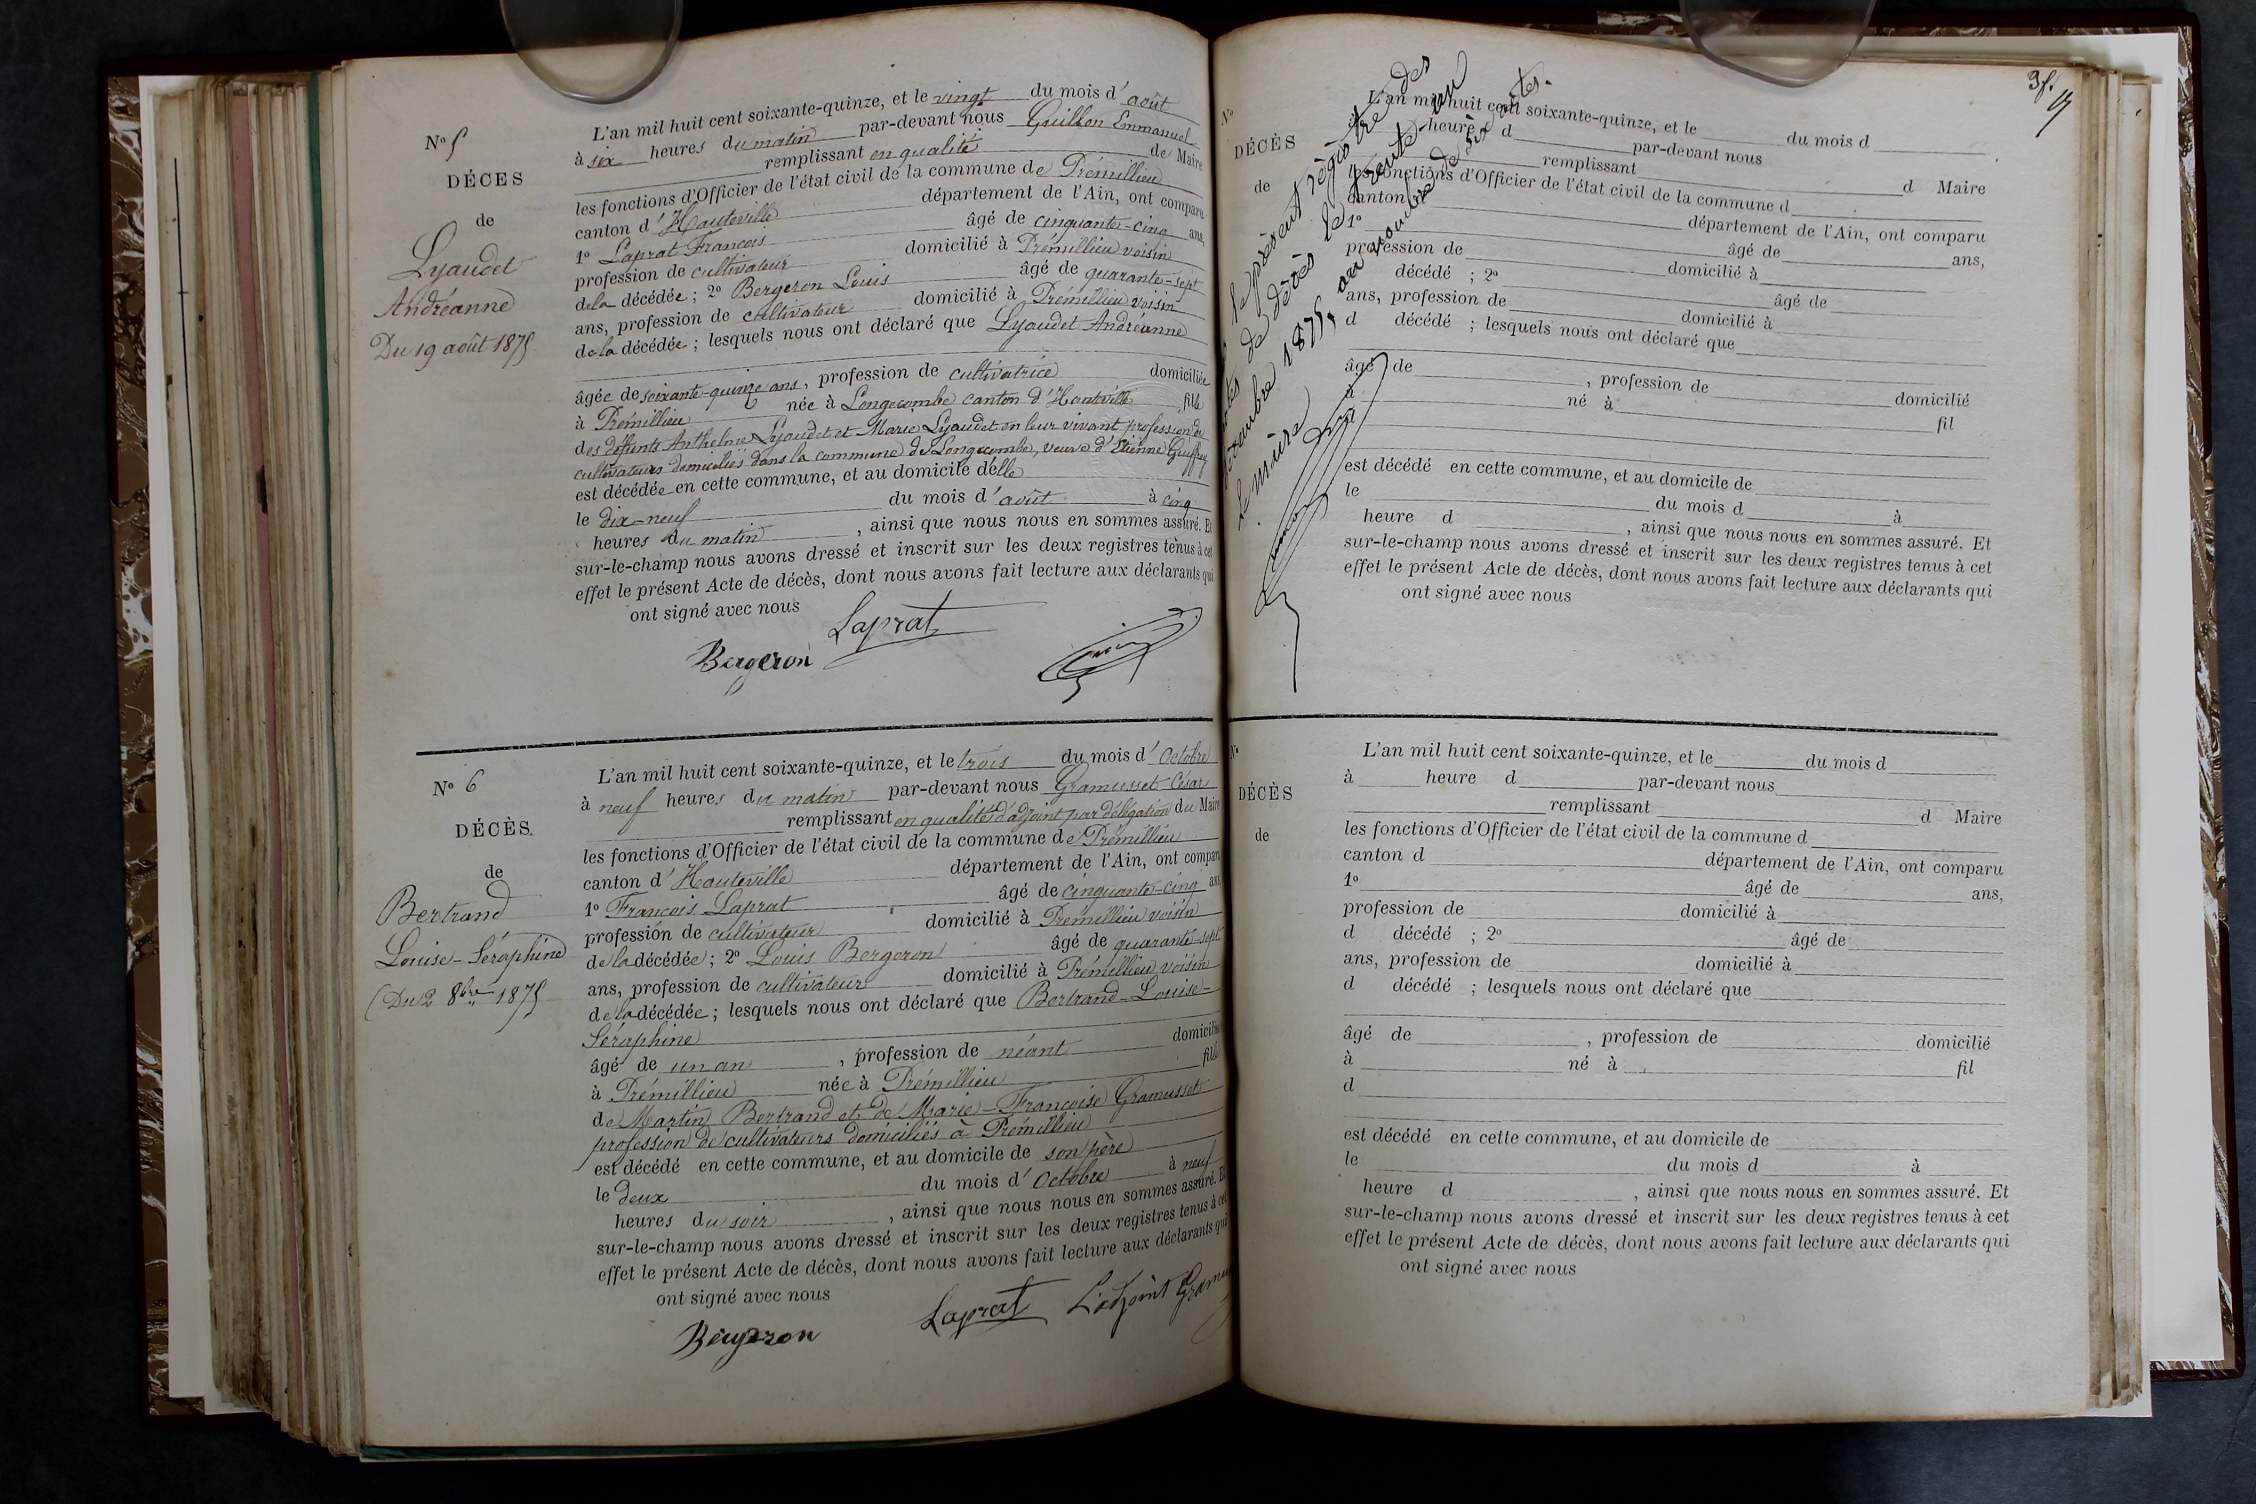 N° 5
DÉCES
de
Lyaudet
Andréanne
Du 19 août 1875
L'an mil huit cent soixante-quinze, et le vingt du mois d'août
à six heures du matin par-devant nous Guillon Emmanuel
remplissant en qualité de Maire
les fonctions d'Officier de l'état civil de la commune de Prémillieu
canton d'Hauteville département de l'Ain, ont comparu
1° Laprat François âgé de cinquante-cinq ans,
profession de cultivateur domicilié à Prémillieu voisin
de la décédée ; 2° Bergeron Louis âgé de quarante-sept
ans, profession de cultivateur domicilié à Prémillieu voisin
de la décédée ; lesquels nous ont déclaré que Lyaudet Andréanne
âgée de soixante-quinze ans, profession de cultivatrice domiciliée
à Prémillieu née à Longecombe canton d'Hauteville fille
des défunts Anthelme Lyaudet et Marie Lyaudet en leur vivant profession de
cultivateurs domiciliés dans la commune de Longecombe, veuve d'Etienne
est décédée en cette commune, et au domicile d'elle
le dix-neuf du mois d'août à cinq
heures du matin, ainsi que nous nous en sommes assuré. Et
sur-le-champ nous avons dressé et inscrit sur les deux registres tenus à cet
effet le présent Acte de décès, dont nous avons fait lecture aux déclarants qui
ont signé avec nous
Laprat
Bergeron
N° 6
DÉCÈS.
de
Bertrand
Louise-Séraphine
Du 2 8bre 1875
L'an mil huit cent soixante-quinze, et le trois du mois d'Octobre
à neuf heures du matin par-devant nous Gramusset César
remplissant en qualité d'adjoint par délégation du Maire
les fonctions d'Officier de l'état civil de la commune de Prémillieu
canton d'Hauteville département de l'Ain, ont comparu
1° François Laprat âgé de cinquante-cinq ans
profession de cultivateur domicilié à Prémillieu voisin
de la décédée ; 2° Louis Bergeron âgé de quarante-sept
ans, profession de cultivateur domicilié à Prémillieu voisin
de la décédée ; lesquels nous ont déclaré que Bertrand-Louise-
Séraphine
âgé de un an, profession de néant domicilié
à Prémillieu née à Prémillieu fille
de Martin Bertrand et de Marie-Françoise Gramusset
profession de cultivateurs domiciliés à Prémillieu
est décédé en cette commune, et au domicile de son père
le deux du mois d'Octobre à neuf
heures du soir, ainsi que nous nous en sommes assuré. Et
sur-le-champ nous avons dressé et inscrit sur les deux registres tenus à cet
effet le présent Acte de décès, dont nous avons fait lecture aux déclarants qui
ont signé avec nous
Laprat L'adjoint
Bergeron
N°
DÉCÈS
de
le présent régistre des
de décès le trente-un
1875, au nombre de six actes.
Le maire
L'an mil huit cent soixante-quinze, et le du mois d
heure d par-devant nous
remplissant d Maire
les fonctions d'Officier de l'état civil de la commune d
canton département de l'Ain, ont comparu
1° âgé de ans,
profession de domicilié à
décédé ; 2° âgé de
ans, profession de domicilié à
d décédé ; lesquels nous ont déclaré que
âgé de , profession de domicilié
à né à fil
est décédé en cette commune, et au domicile de
le du mois d à
heure d , ainsi que nous nous en sommes assuré. Et
sur-le-champ nous avons dressé et inscrit sur les deux registres tenus à cet
effet le présent Acte de décès, dont nous avons fait lecture aux déclarants qui
ont signé avec nous
N°
DÉCÈS
de
L'an mil huit cent soixante-quinze, et le du mois d
à heure d par-devant nous
remplissant d Maire
les fonctions d'Officier de l'état civil de la commune d
canton d département de l'Ain, ont comparu
1° âgé de ans,
profession de domicilié à
d décédé ; 2° âgé de
ans, profession de domicilié à
d décédé ; lesquels nous ont déclaré que
âgé de , profession de domicilié
à né à fil
d
est décédé en cette commune, et au domicile de
le du mois d à
heure d , ainsi que nous nous en sommes assuré. Et
sur-le-champ nous avons dressé et inscrit sur les deux registres tenus à cet
effet le présent Acte de décès, dont nous avons fait lecture aux déclarants qui
ont signé avec nous